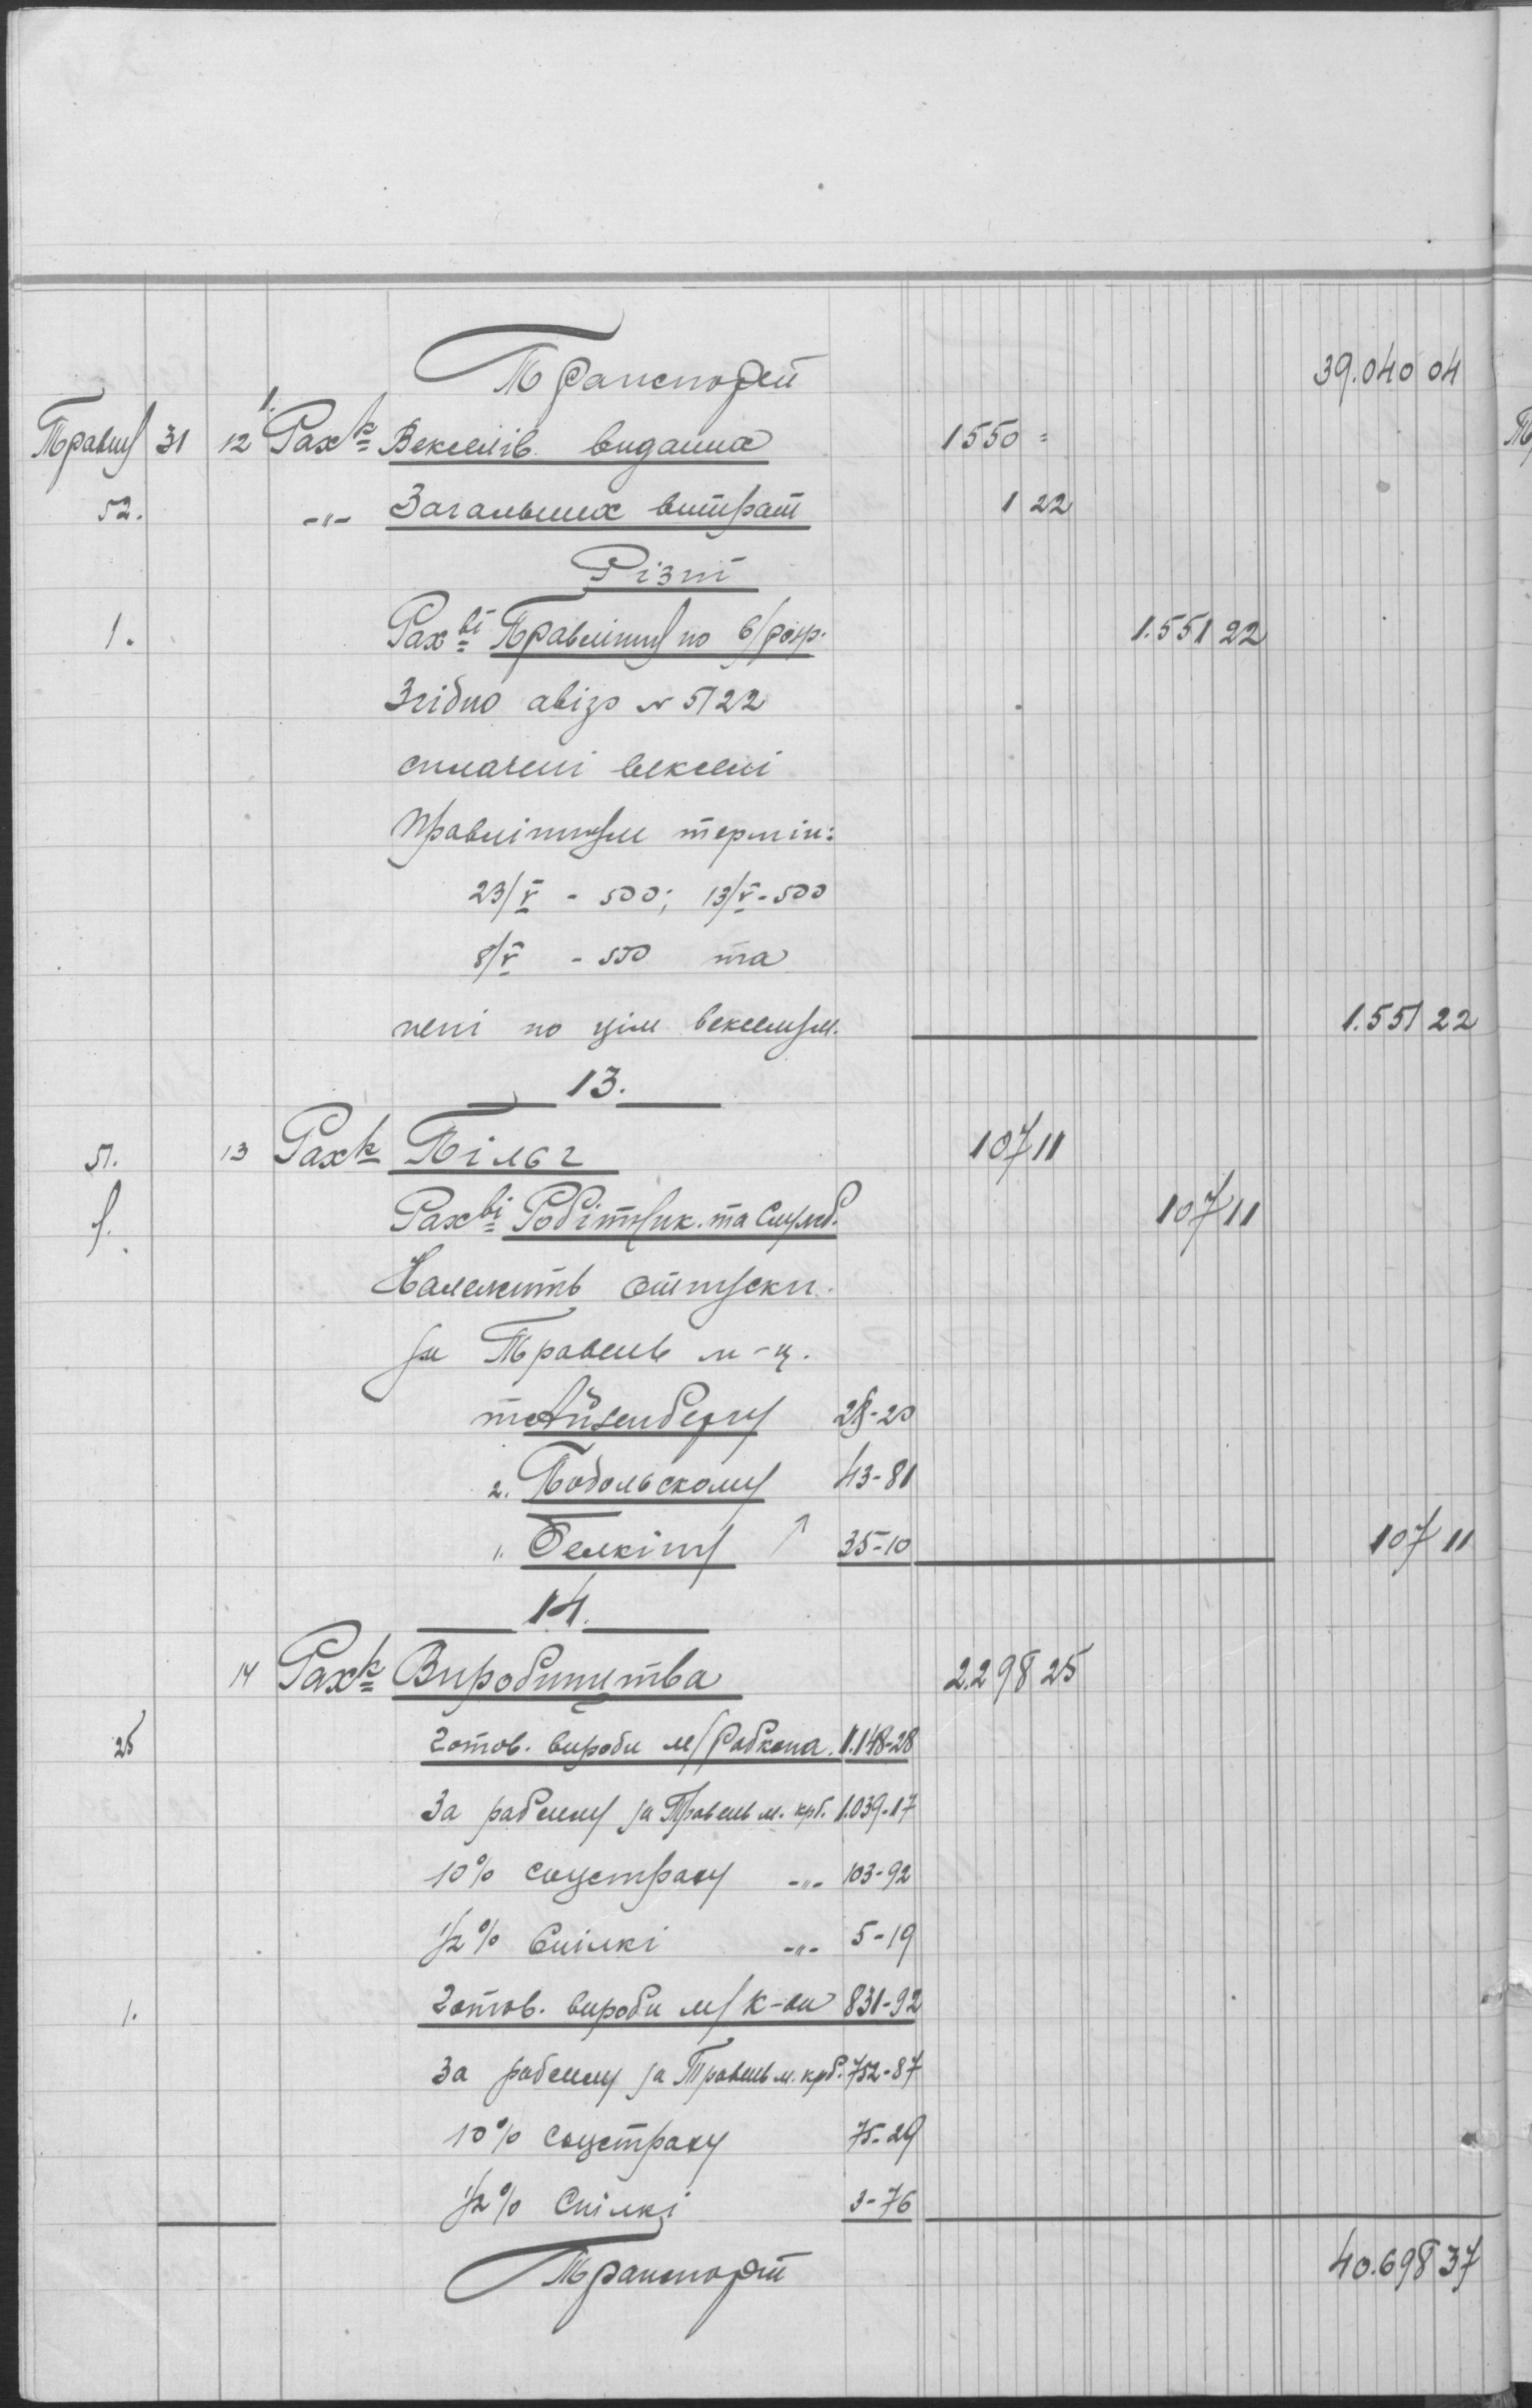 Транспорт 39.040 04
1.
Травня 31 12 Рахк Векселів виданих 1550 =
52. -"- Загальних витрат 1 22
Різні
1. Рахві Правління по в/розр. 1.551 22
Згідно авізо № 5122
сплачені векселі
Правлінням термін:
23/V - 500; 13/V - 500
8/V - 550 та
пені по цім векселям. 1.551 22
13.
51. 13 Рахк Пільг 107 11
Рахві Робітник. та Служб. 107 11
Належить отпуски
за Травень м-ц.
Айзенбергу 28-20
2. Подольскому 43-81
". Белкіну 35-10 107 11
14.
14 Рахк Виробництва 2.298 25
25 Готов. вироби м/Рабкопа. 1.148-28
За работу за Травень м. крб. 1.039-17
10% соцстраху -"- 103-92
1/2% Спілкі -"- 5-19
1. Готов. вироби м/к-ви 831-92
За работу за Травень м. крб. 752-87
10% соцстраху 75-29
1/2% Спілкі 3-76
Транспорт 40.698 37